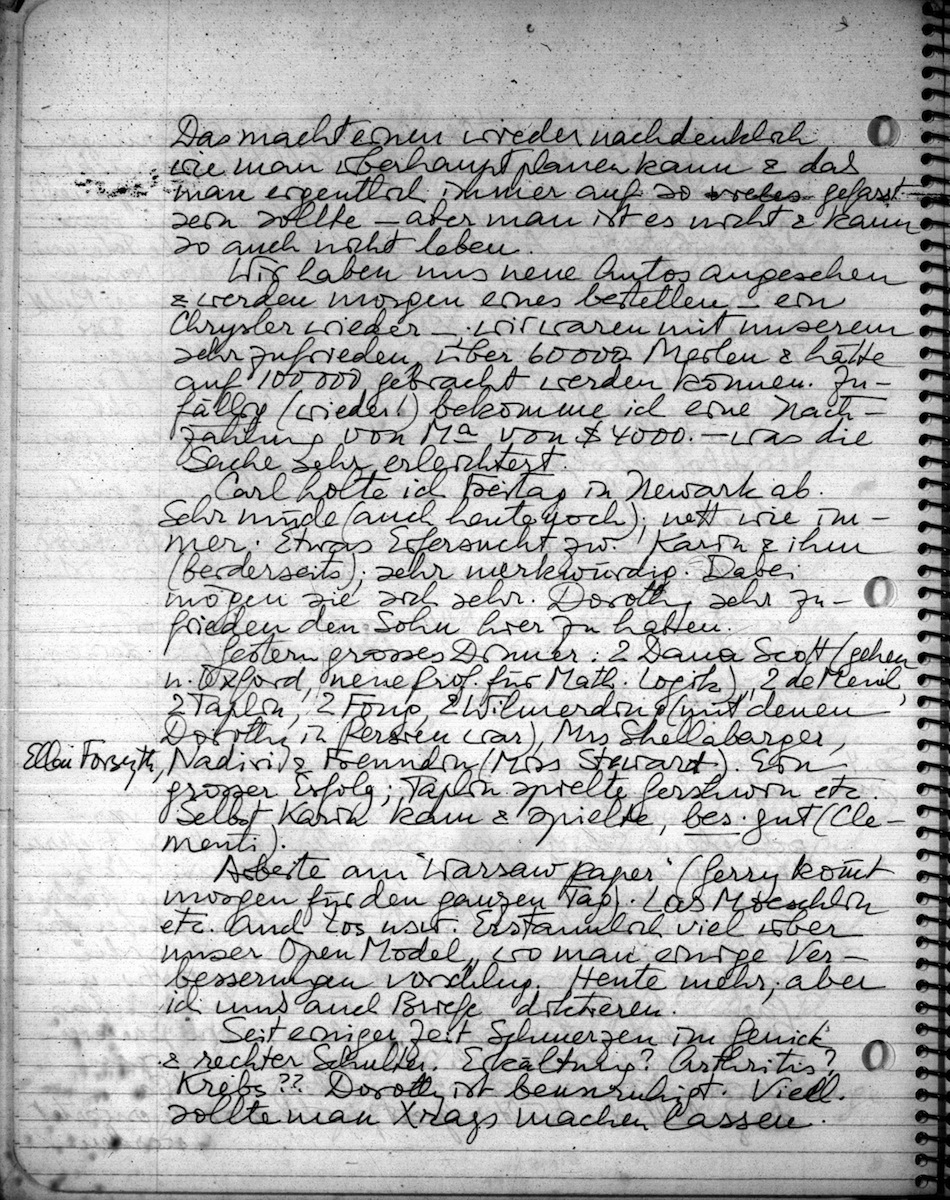 Das macht einen wieder nachdenklich
wie man überhaupt planen kann & das
man eigentlich immer auf so vieles gefasst
sein sollte – aber man ist es nicht & kann
so auch nicht leben.
Wir haben uns neue Autos angesehen
& werden morgen eines bestellen – ein
Chrysler wieder – wir waren mit unserem
sehr zufrieden, über 60000 Meilen & hätte
auf 100000 gebracht werden können. Zu-
fällig (wieder!) bekomme ich eine Nach-
zahlung von Ma von $4000.– was die
Sache sehr erleichtert.
Carl holte ich Freitag in Newark ab.
Sehr müde (auch heute noch); nett wie im-
mer. Etwas Eifersucht zw. Karin & ihm
(beiderseits); sehr merkwürdig. Dabei
mögen sie sich sehr. Dorothy sehr zu-
frieden den Sohn hier zu haben.
Gestern grosses Dinner: 2 Dana Scott (gehen
n. Oxford, neue Prof. für Math. Logik), 2 de Menil,
2 Taplin, 2 Fong, 2 Wilmerding (mit denen
Dorothy in Persien war), Mrs Shellabarger,
Ellen Forsyth, Nadiri & Freundin (Miss Stewart). Ein
grosser Erfolg; Taplin spielte Gershwin etc.
Selbst Karin kam & spielte, bes. gut (Cle-
menti).
Arbeite am "Warsaw paper" (Gerry kommt
morgen für den ganzen Tag). Las Moeschlin
etc. And Los usw. Erstaunlich viel über
unser Open Model, wo man einige Ver-
besserungen vorschlug. Heute mehr, aber
ich muss auch Briefe diktieren.
Seit einiger Zeit Schmerzen im Genick
& rechter Schulter. Erkältung? Arthritis?
Krebs?? Dorothy ist beunruhigt. Viell.
sollte man Xrays machen lassen.